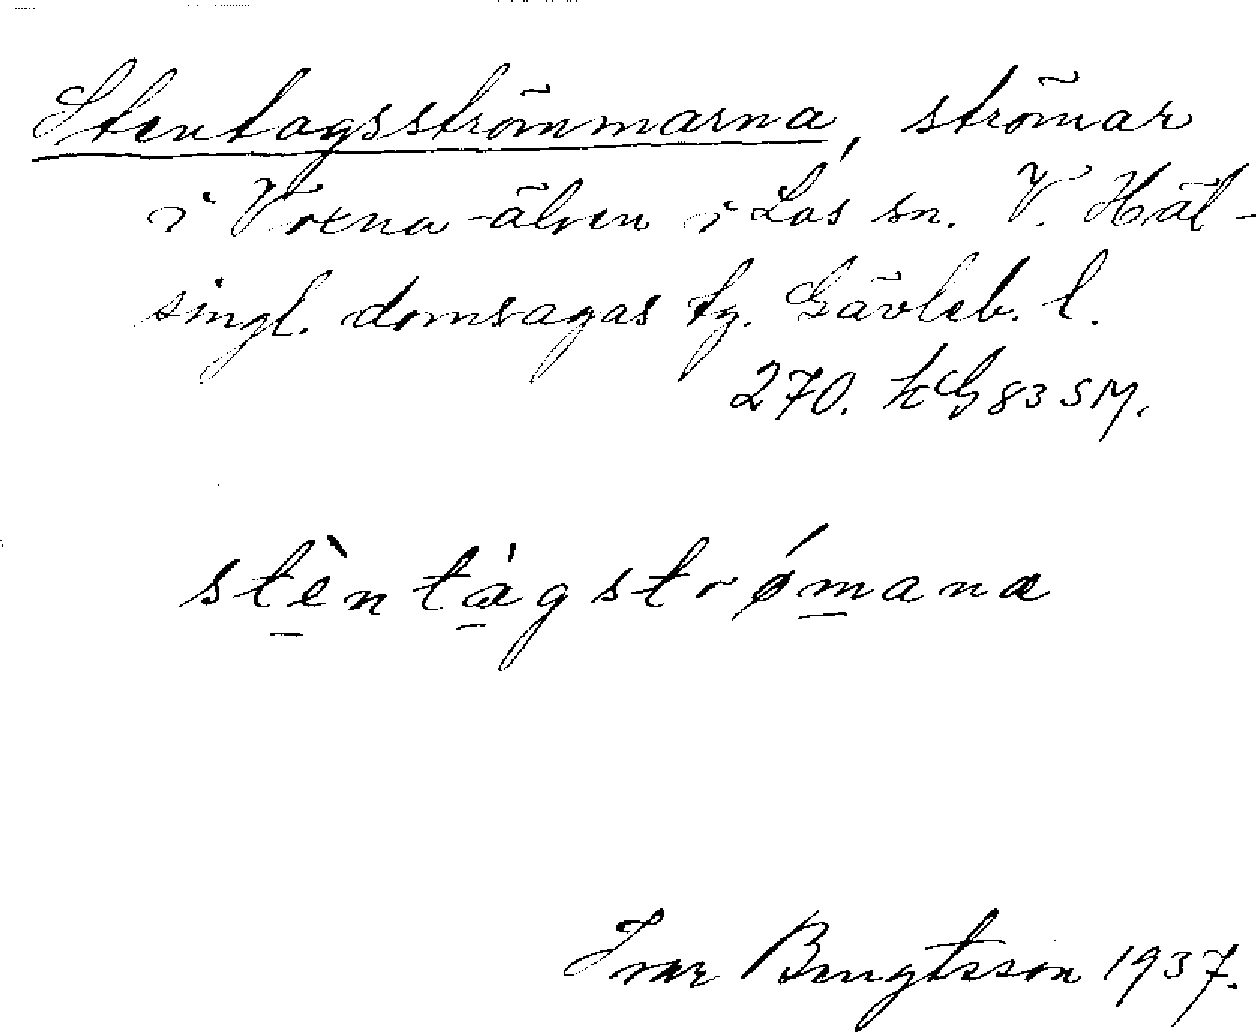 Stentagsströmmarna, strömar
i Voxna-älven i Los sn. V. Häl-
singl. domsagas tg. Gävleb. l.
270. kG 83 SM.
stèntágstrǿmana
Ivar Bengtsson 1937.